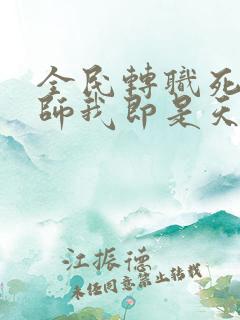 全民轉職死
師我即是天
江振德
未任同意禁止转载